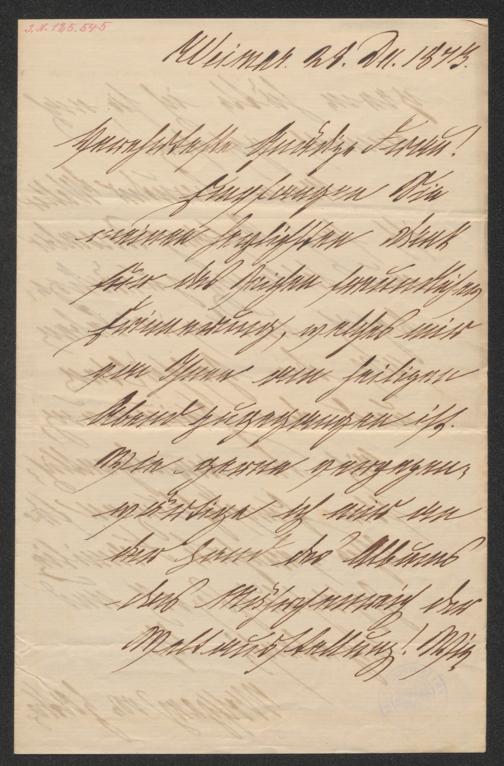 J.N. 125.545
Weimar. 28. Dec. 1873.
Verehrteste Gnädige Frau!
Empfangen Sie
meinen herzlichsten Dank
für das Zeichen freundlichen
Erinnerung, welches mir
von Ihnen am heiligen
Abend zugegangen ist.
Wie gerne vergegen-
wärtige ich mir an
der Hand des Albums
das Märchenreich der
Weltausstellung! Wie